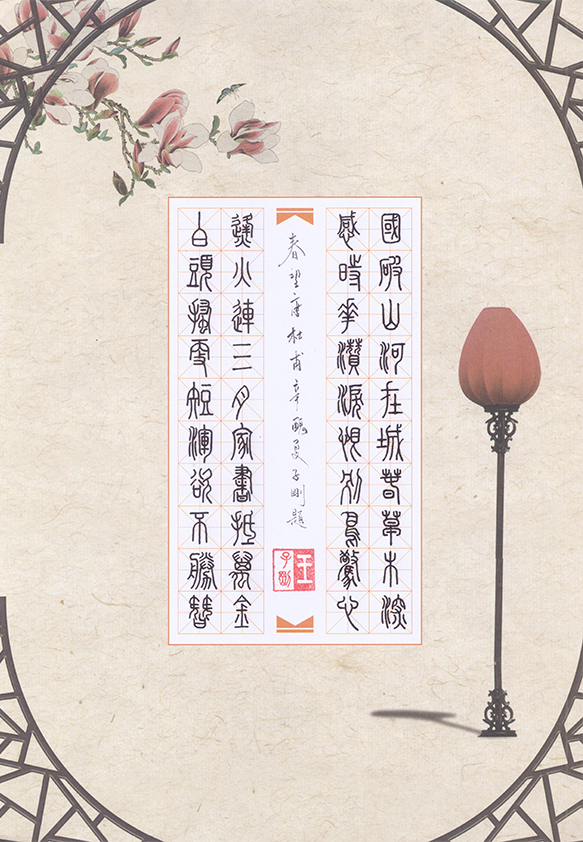 國破山河在城春草木深
感時花濺淚恨別鳥驚心
春望唐杜甫辛醜夏子剛題
王子剛
烽火連三月家書抵萬金
白頭搔更短渾欲不勝簪